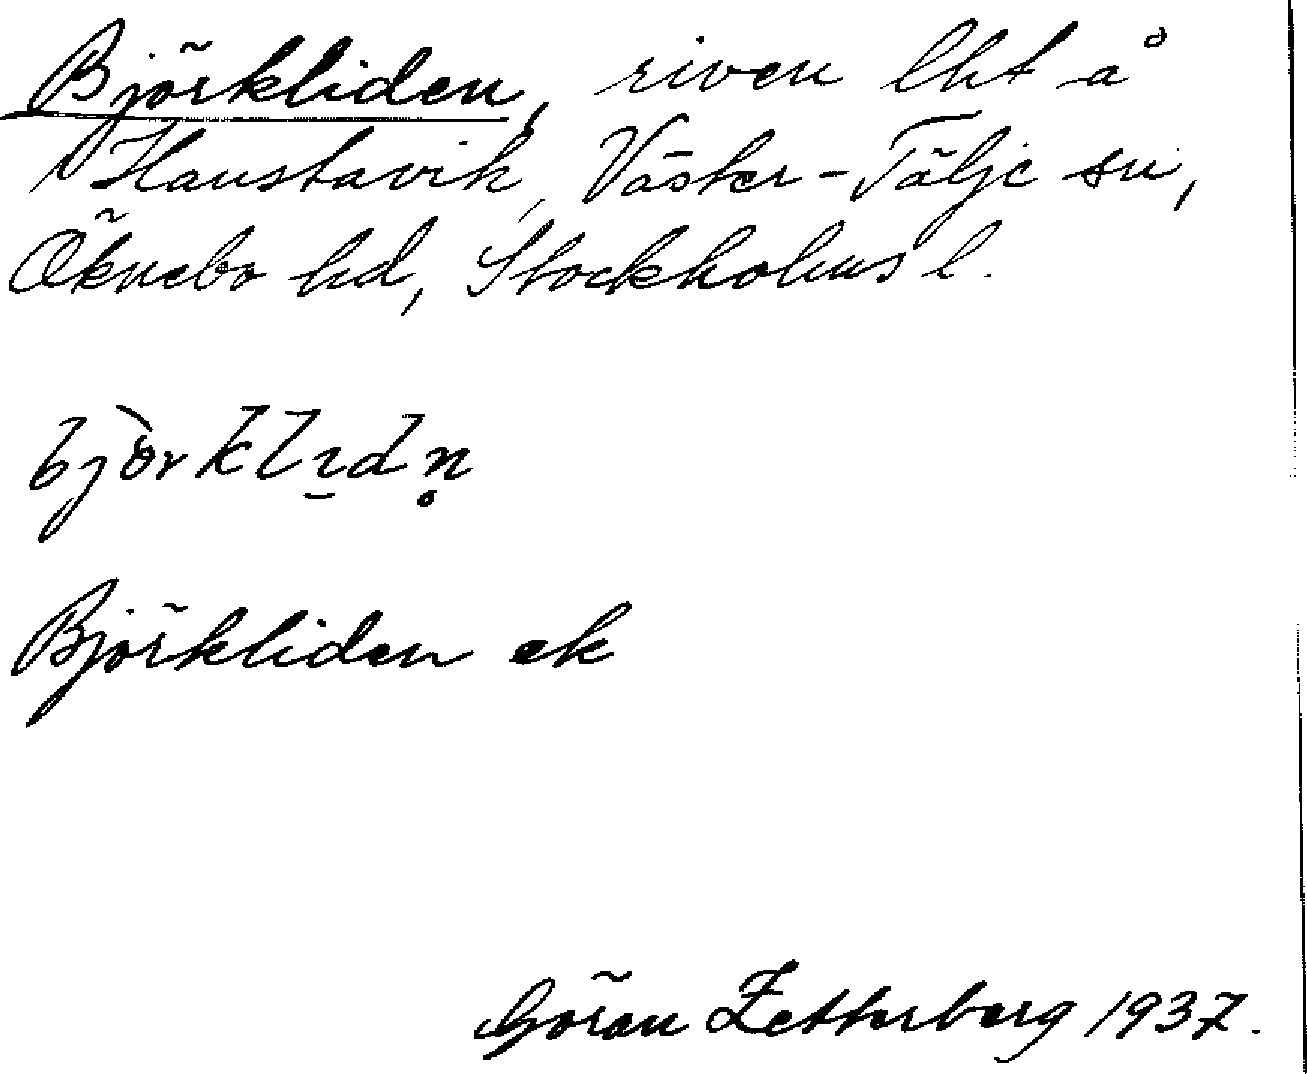 Björkliden, riven lht å
Haustavik, Väster-Tälje sn,
Öknebo hd, Stockholms l.
bjòrklɩdn̥
Björkliden ek
Göran Zetterberg 1937.